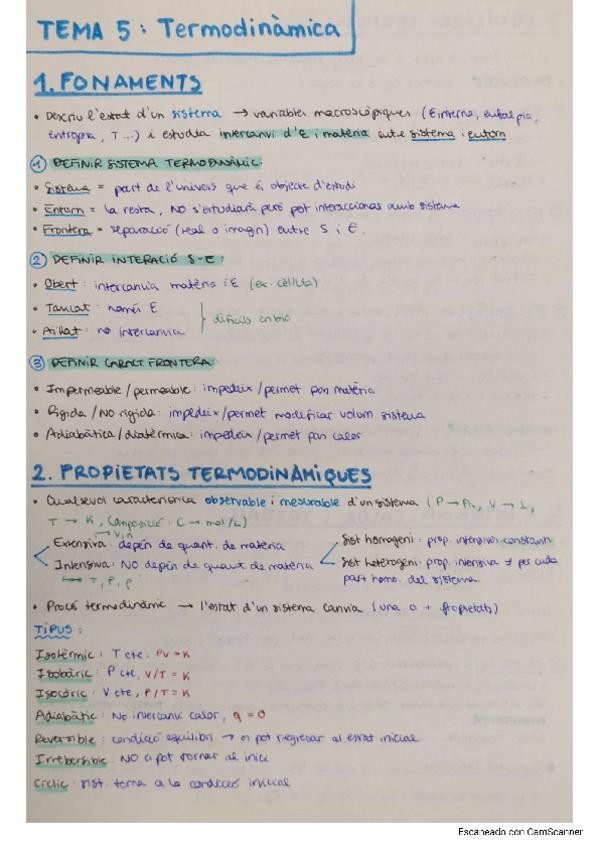 TEMA 5: Termodinàmica
1. FONAMENTS
• Descriu l'estat d'un sistema → variables macroscòpiques (E interna, entalpia,
entropia, T...) i estudia intercanvi d'E i matèria entre sistema i entorn
① DEFINIR SISTEMA TERMODINÀMIC:
• Sistema = part de l'univers que és objecte d'estudi
• Entorn = la resta, NO s'estudiarà però pot interaccionar amb sistema
• Frontera = separació (real o imagin) entre S i E.
② DEFINIR INTERACIÓ S-E:
• Obert: intercanvia matèria i E (ex. cèl·lula)
• Tancat: només E
• Aïllat: no intercanvia
difícils en bio
③ DEFINIR CARACT FRONTERA
• Impermeable/permeable: impedeix/permet pas matèria
• Rígida/NO rígida: impedeix/permet modificar volum sistema
• Adiabàtica/diatèrmica: impedeix/permet pas calor
2. PROPIETATS TERMODINÀMIQUES
• Qualsevol característica observable i mesurable d'un sistema (P → Pa, V → L,
T → K, Composició: C → mol/L)
→ V, n
Extensiva: depèn de quant. de matèria
Intensiva: NO depèn de quant de matèria
→ T, P, ρ
Sist homogeni: prop. intensives constants
Sist heterogeni: prop. intensiva ≠ per cada
part homo. del sistema.
• Procés termodinàmic → l'estat d'un sistema canvia (una o + propietats)
TIPUS:
Isotèrmic: T cte. PV = K
Isobàric: P cte, V/T = K
Isocòric: V cte, P/T = K
Adiabàtic: No intercanvi calor, q = 0
Reversible: condició equilibri → es pot regresar al estat inicial
Irrebersible: NO es pot tornar al inici
Cíclic: sist. torna a la condició inicial
Escaneado con CamScanner